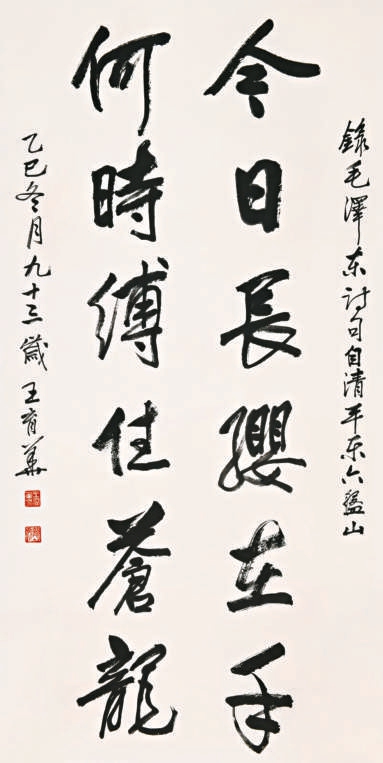 錄毛澤东诗句自清平乐六盤山
今日長纓在手
何時縛住蒼龍
乙巳冬月九十三歲王育華